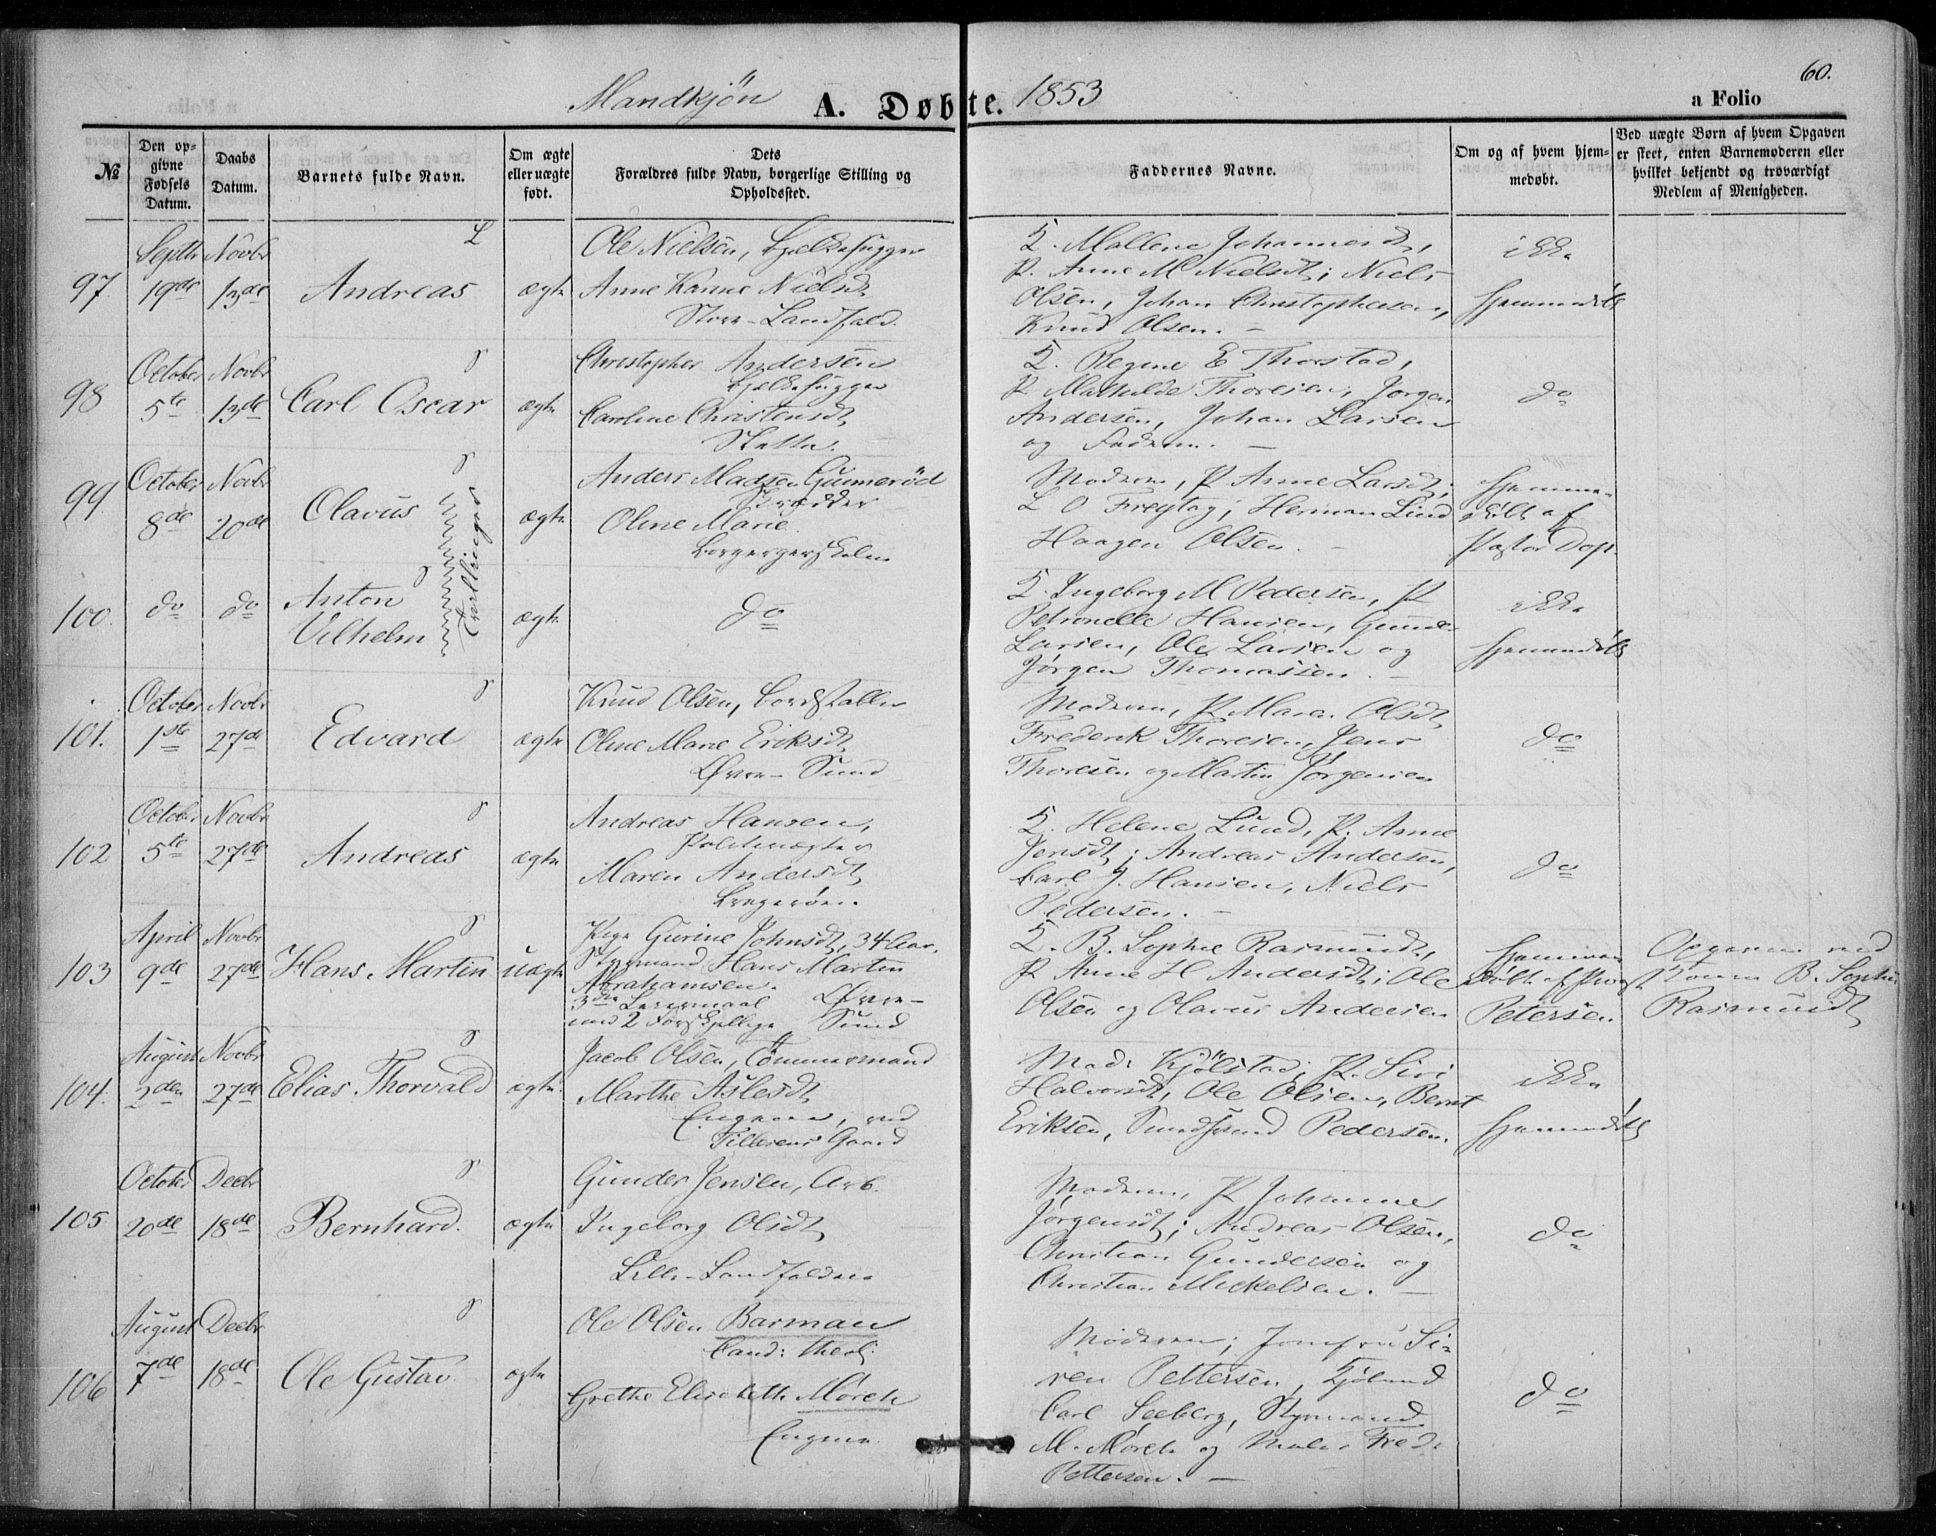 Mandkjön A. Døbte. 1853
60.
a Folio
№
Den op-
givne
Fødsels
Datum.
Daabs
Datum.
Barnets fulde Navn.
Om ægte
eller uægte
født.
Dets
Forældres fulde Navn, borgerlige Stilling og
Opholdssted.
Faddernes Navne.
Om og af hvem hjem-
medøbt.
Ved uægte Børn af hvem Opgaven
er skeet, enten Barnemoderen eller
hvilket bekjendt og troværdigt
Medlem af Menigheden.
97
Septbr
19de
Novbr
13de
Andreas
ægte
Ole Nielsen,
Anne Karine Nielsdt
Store-Landfald.
Mallene Johannesdt,
P. Anne M Nielsdt; Niels
Olsen, Johan Christophersen,
Knud Olsen. -
ikke
hjemmedöbt
98
October
5te
Novbr
13de
Carl Oscar
ægte
Christopher Andersen
Caroline Christensdt
Regene E Thorstad,
P Mathilde Thoresen, Jørgen
Andersen, Johan Larsen
og Faderen. -
do
99
October
8de
Novbr
20de
Olavus
Tvillinger
ægte
Anders Madsen Gunnerød
Skrædder
Oline Marie
Moderen, P Anne Larsdt;
L O Freytag, Herman Lund
Haagen Olsen. -
Hjemme-
döbt af
Pastor Dop.
100.
do
do
Anton
Vilhelm
ægte
do
Ingeborg M Pedersen, P
Petronelle Hansen, Gunder
Larsen, Ole Larsen og
Jørgen Thomassen. -
ikke
hjemmedöbt
101.
October
1ste
Novbr
27de
Edvard
ægte
Knud Olsen,
Oline Marie Eriksdt
Øvre-Sund
Moderen, P Maren Olsdt
Frederik Thoresen, Jens
Thoresen og Martin Jørgensen
do
102
October
5te
Novbr
27de
Andreas
ægte
Andreas Hansen,
Politivægter
Maren Andersdt
Bragerøen.
Helene Lund, P. Anne
Jensdt; Andreas Andersen,
Carl J. Hansen, Niels
Pedersen. -
do
103
April
9de
Novbr
27de
Hans Martin
uægte
Pige Gurine Johnsdt, 34 Aar,
Styrmand Hans Martin
Abrahamsen.
3die Leiermaal Øvre-
med 2 Forskjellige Sund
B. Sophie Rasmusdt,
P Anne H Andersdt; Ole
Olsen og Olavus Andersen
Hjemme-
döbt af Provst
Petersen
Opgaven ved
B. Sophie
Rasmusdt
104.
August
2den
Novbr
27de
Elias Thorvald
ægte
Jacob Olsen, Tömmermand
Marthe Aslesdt
Engene, ved
Tillesens Gaard
Mad. Kjölstad, P. Siri
Halvorsdt, Ole Olsen, Bernt
Eriksen, Pedersen.
ikke
hjemmedöbt
105
October
20de
Decbr
18de
Bernhard.
ægte
Gunder Jensen, Arb.
Ingeborg Olsdt
Lille-Landfalden
Moderen, P Johanne
Jørgensdt; Andreas Olsen,
Christian Gundersen og
Christian Mickelsen. -
do
106
August
7de
Decbr
18de
Ole Gustav
ægte
Ole Olsen Barman
Cand: theol:
Grethe Elisabeth Mørch
Engene
Moderen; Jomfru Si-
ren Pettersen,
Carl Seeberg, Styrmand
M. Mørch og Maler Fred.
Pettersen. -
do